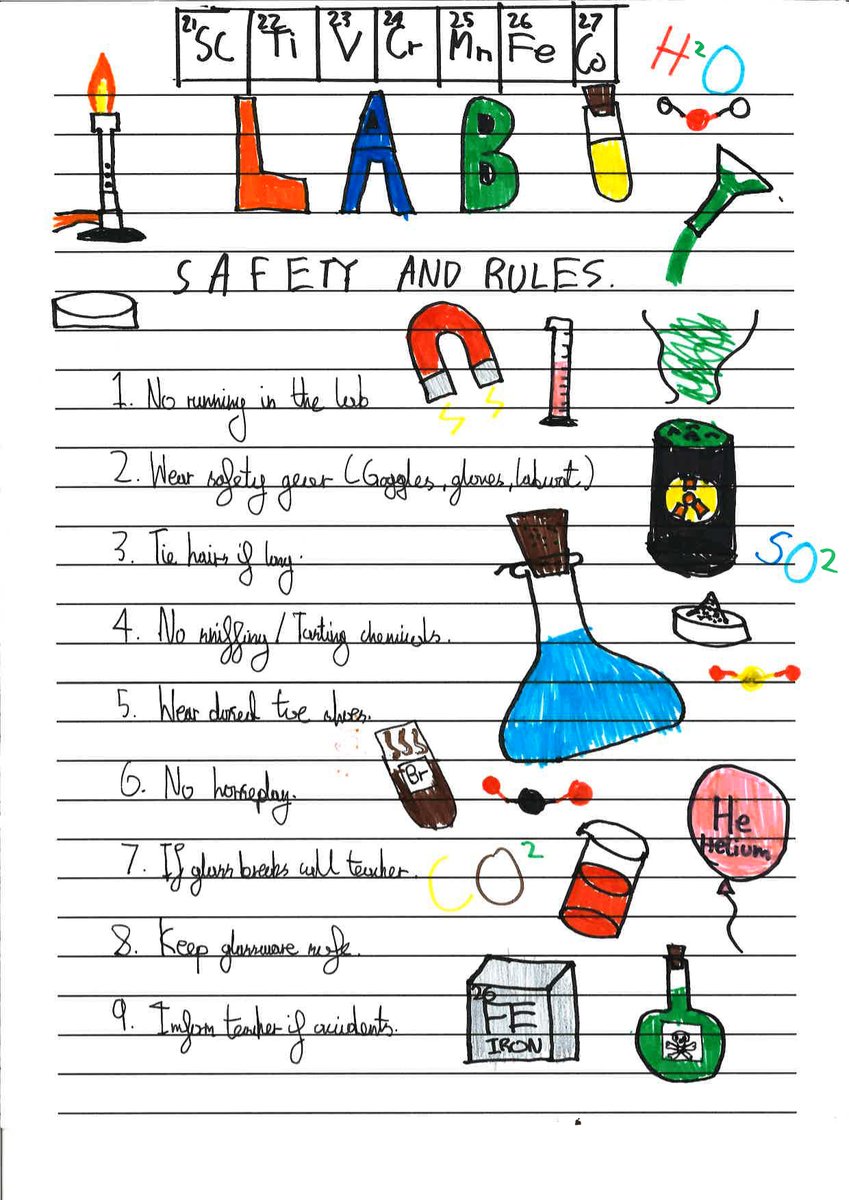 21 Sc 22 Ti 23 V 24 Cr 25 Mn 26 Fe 27 Co
H2O
LAB
SAFETY AND RULES.
1. No running in the lab
2. Wear safety gear (Goggles, gloves, labcoat.)
3. Tie hairs if long.
SO2
4. No sniffing / Tasting chemicals.
5. Wear closed toe shoes.
Br
6. No horseplay.
He
Helium
7. If glass breaks call teacher.
CO2
8. Keep glassware safe.
26
FE
IRON
9. Inform teacher if accidents.